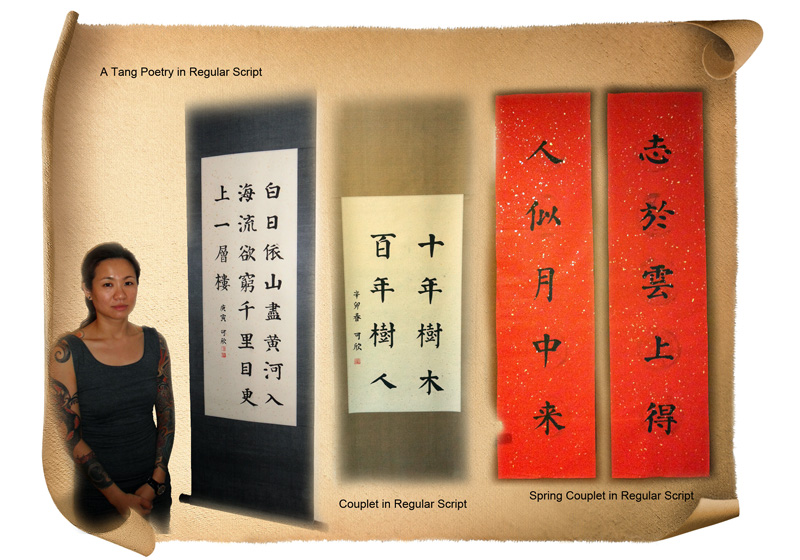 A Tang Poetry in Regular Script
白日依山盡黃河入
海流欲窮千里目更
上一層樓
庚寅 可欣
十年樹木
百年樹人
辛卯春 可欣
Couplet in Regular Script
志於雲上得
人似月中来
Spring Couplet in Regular Script